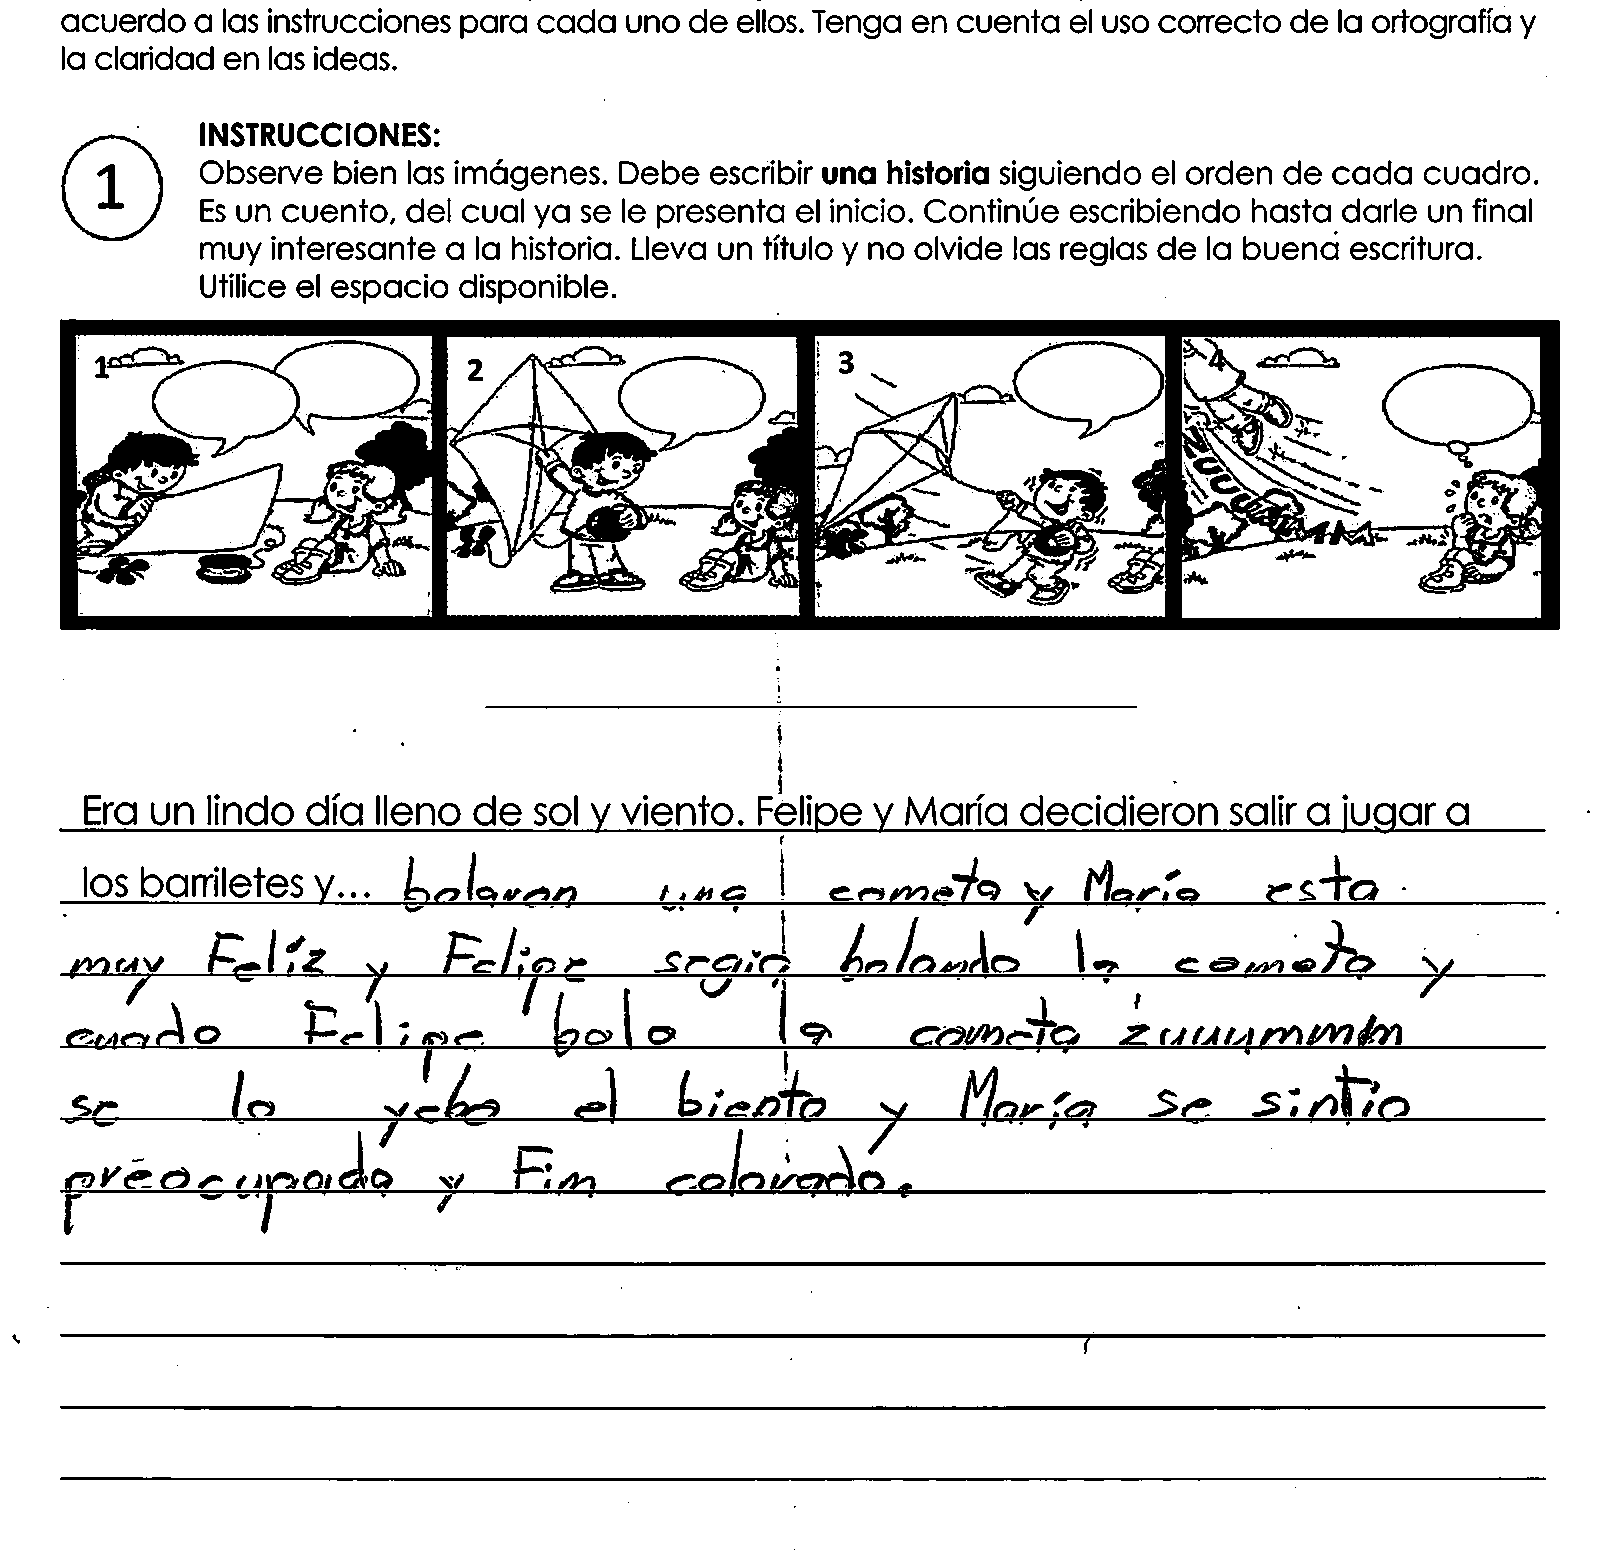 acuerdo a las instrucciones para cada uno de ellos. Tenga en cuenta el uso correcto de la ortografía y
la claridad en las ideas.
1
INSTRUCCIONES:
Observe bien las imágenes. Debe escribir una historia siguiendo el orden de cada cuadro.
Es un cuento, del cual ya se le presenta el inicio. Continúe escribiendo hasta darle un final
muy interesante a la historia. Lleva un título y no olvide las reglas de la buena escritura.
Utilice el espacio disponible.
1 2 3 4
Era un lindo día lleno de sol y viento. Felipe y María decidieron salir a jugar a
los barriletes y... bolaron una cometa y María esta
muy Felíz y Felipe segia bolando la cometa y
cuado Felipe bolo la cometa zuuuummmm
se lo yebo el biento y María se sintio
preocupada y Fin colorado.